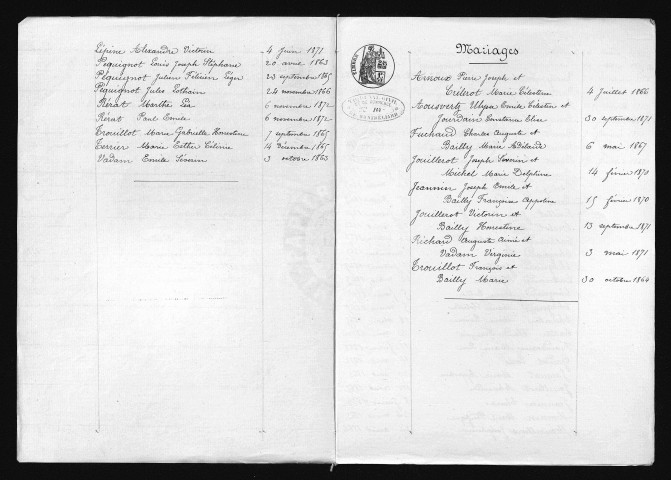 Lépine Alexandre Victorin 4 Juin 1871
Péquignot Louis Joseph Stéphane 20 avril 1863
Péquignot Julien Félicien Léger 23 septembre 1865
Péquignot Jules Lothain 24 novembre 1866
Pérat Marthe Léa 6 novembre 1872
Pérat Paul Emile 6 novembre 1872
Trouillot Marie Gabrielle Honorine 7 septembre 1865
Terrier Marie Esther Célinie 14 Décembre 1865
Vadam Emile Séverin 3 octobre 1863
Mariages
Arnoux Pierre Joseph et
Marie Célestine 4 Juillet 1866
Ulysse Emile Célestin et
Jourdain Constance Elise 30 septembre 1871
Charles Auguste et
Bailly Marie Adélaïde 6 mai 1867
Jouillerot Joseph Séverin et
Michel Marie Delphine 14 février 1870
Jeannin Joseph Emile et
Bailly Françoise Appoline 15 février 1870
Jouillerot Victorin et
Bailly Honorine 13 septembre 1871
Richard Auguste Aimé et
Vadam Virginie 3 mai 1871
Trouillot François et
Bailly Marie 30 octobre 1864